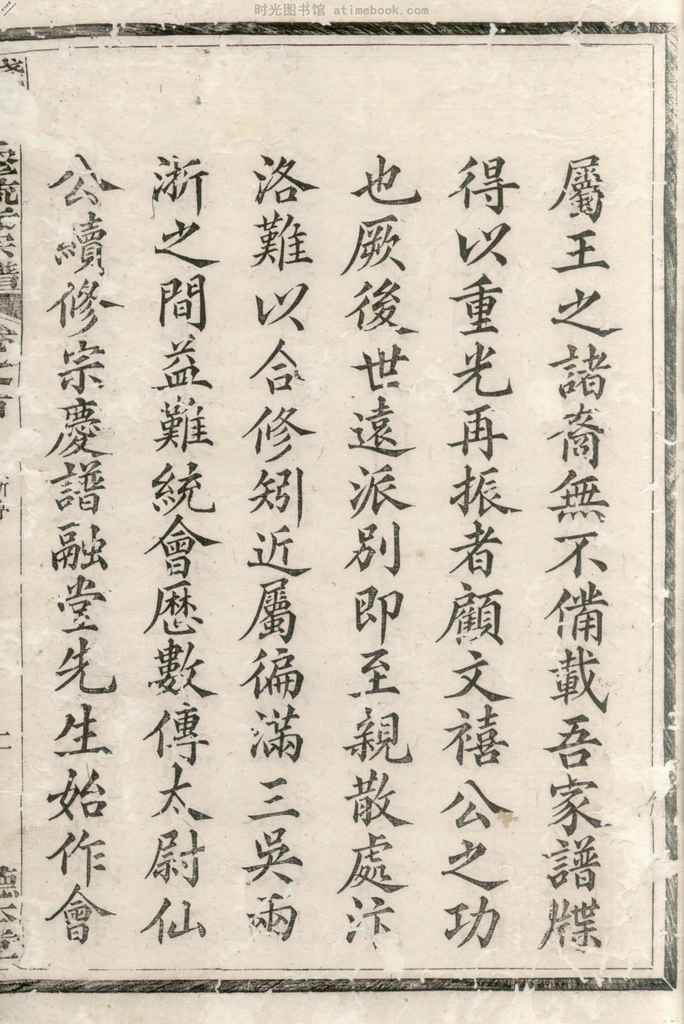 时光图书馆 atimebook.com
屬王之諸裔無不備載吾家譜牒
得以重光再振者顧文禧公之功
也厥後世遠派別即至親散處汴
洛難以合修矧近屬徧滿三吳兩
浙之間益難統會歷數傳太尉仙
公續修宗慶譜融堂先生始作會
氏宗譜